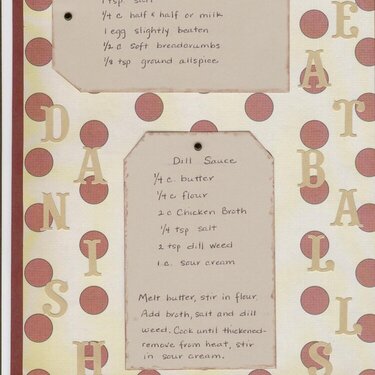 1 tsp salt
1/4 c half & half or milk
1 egg slightly beaten
1/2 c soft breadcrumbs
1/8 tsp ground allspice
DANISH
EATBALLS
Dill Sauce
1/4 c. butter
1/4 c. flour
2 c Chicken Broth
1/4 tsp salt
2 tsp dill weed
1 c. sour cream
Melt butter, stir in flour.
Add broth, salt and dill
weed. Cook until thickened-
remove from heat, stir
in sour cream.